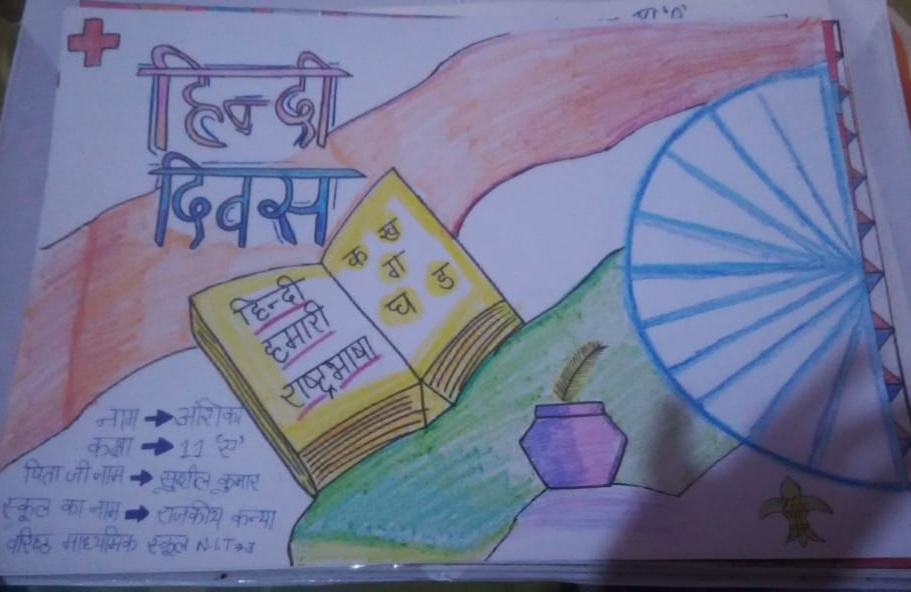 हिन्दी
दिवस
क ख
ग
घ ङ
हिन्दी
हमारी
राष्ट्रभाषा
नाम → अंशिका
कक्षा → 11 'ए'
पिता जी नाम → सुशील कुमार
स्कूल का नाम → राजकीय कन्या
वरिष्ठ माध्यमिक स्कूल N.I.T